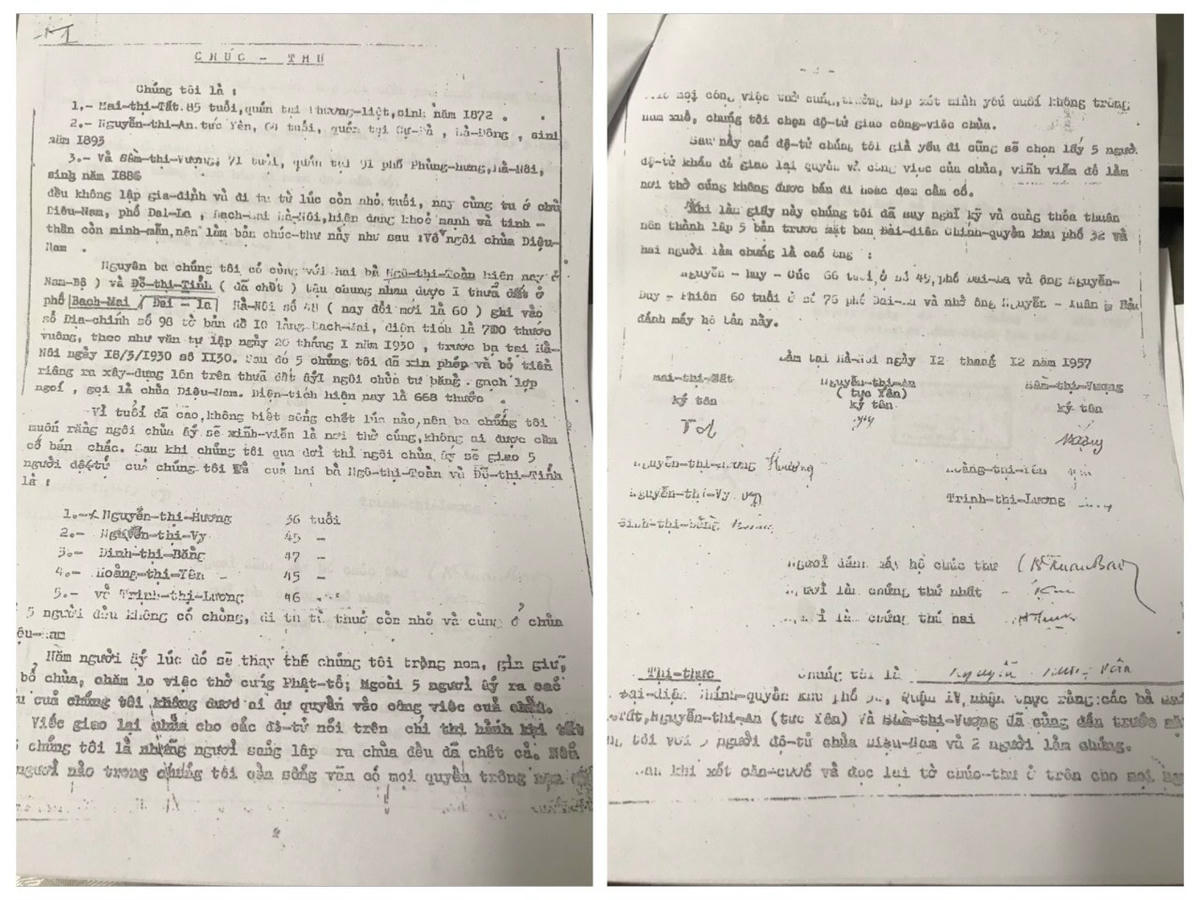 CHÚC - THƯ
Chúng tôi là :
1.- Mai-thị-Tất 85 tuổi, quán tại Phương-liệt, sinh năm 1872 .
2.- Nguyễn-thị-An tức Yên, 64 tuổi, quán tại Cự-Đà , Hà-Đông , sinh
năm 1893
3.- Và Sầm-thị-Vượng, 71 tuổi, quán tại 91 phố Phùng-hưng, Hà-Nội,
sinh năm 1886
đều không lập gia-đình và đi tu từ lúc còn nhỏ tuổi, nay cùng tu ở chùa
Diệu-Nam, phố Dal-La , Bạch-Mai Hà-Nội, hiện đang khoẻ mạnh và tinh -
thần còn minh-mẫn, nên làm bản chúc-thư này như sau : Về ngôi chùa Diệu-
Nam .
Nguyên ba chúng tôi có cùng với hai bà Ngô-thị-Toàn hiện nay ở
Nam-Bộ ) và Đỗ-thị-Tỉnh ( đã chết ) tậu chung nhau được I thửa đất ở
phố Bạch-Mai / Đại - la Hà-Nội số 48 ( nay đổi mới là 60 ) ghi vào
số Địa-chính số 98 tờ bản đồ 10 làng Bạch-Mai, diện tích là 700 thước
vuông, theo như văn tự lập ngày 20 tháng I năm 1930 , trước bạ tại Hà-
Nội ngày 18/3/1930 số II30. Sau đó 5 chúng tôi đã xin phép và bỏ tiền
riêng ra xây-dựng lên trên thửa đất ấy I ngôi chùa tư bằng gạch lợp
ngói , gọi là chùa Diệu-Nam. Diện-tích hiện nay là 668 thước
Vì tuổi đã cao, không biết sống chết lúc nào, nên ba chúng tôi
muốn rằng ngôi chùa ấy sẽ vĩnh-viễn là nơi thờ cúng, không ai được cầm
cố bán chác. Sau khi chúng tôi qua đời thì ngôi chùa ấy sẽ giao 5
người đệ-tử của chúng tôi và của hai bà Ngô-thị-Toàn và Đỗ-thị-Tỉnh
là :
1.- Nguyễn-thị-Hương 36 tuổi
2.- Nguyễn-thị-Vy 45 -
3.- Đinh-thị-Bằng 47 -
4.- Hoàng-thị-Yên - 45 -
5.- và Trịnh-thị-Lương 46
5 người đều không có chồng, đi tu từ thuở còn nhỏ và cùng ở chùa
Năm người ấy lúc đó sẽ thay thế chúng tôi trông nom, gìn giữ,
bổ chùa, chăm lo việc thờ cúng Phật-tổ; Ngoài 5 người ấy ra các
của chúng tôi không được ai dự quyền vào công việc của chùa.
Việc giao lại chùa cho các đệ-tử nói trên chỉ thi hành khi tất
chúng tôi là những người sáng lập ra chùa đều đã chết cả. Nếu
người nào trong chúng tôi còn sống vẫn có mọi quyền trông nom
mọi công việc thờ cúng, trường hợp xét mình yếu đuối không trông
nom xuể, chúng tôi chọn đệ-tử giao công-việc chùa.
Sau này các đệ-tử chúng tôi già yếu đi cũng sẽ chọn lấy 5 người
đệ-tử khác để giao lại quyền về công việc của chùa, vĩnh viễn để làm
nơi thờ cúng không được bán đi hoặc đem cầm cố.
Khi làm giấy này chúng tôi đã suy nghĩ kỹ và cùng thỏa thuận
nên thành lập 5 bản trước mặt ban Đại-diện Chính-quyền khu phố 32 và
hai người làm chứng là các ông :
Nguyễn - Huy - Cúc 66 tuổi, ở số 45, phố Đai-La và ông Nguyễn-
Duy - Phiên 60 tuổi ở số 76 phố Đai-La và nhờ ông Nguyễn - Xuân
đánh máy hộ bản này.
Làm tại Hà-Nội ngày 12 tháng 12 năm 1957
Mai-thị-Tất Nguyễn-thị-An Sầm-thị-Vượng
( tức Yên)
ký tên ký tên ký tên
Nguyễn-thị-Hương Hoàng-thị-Yên
Nguyễn-thị-Vy Trịnh-thị-Lương
Đinh-thị-Bằng
Người đánh máy hộ chúc thư
Người làm chứng thứ nhất -
Người làm chứng thứ hai
Thị-thực Chúng tôi là
Đại-diện Chính-quyền khu phố Quận IV, nhận thực rằng: các bà Mai
Nguyễn-thị-An (tức Yên) và Sầm-thị-Vượng đã cùng đến trước
tôi với 5 người đệ-tử chùa Diệu-Nam và 2 người làm chứng.
Sau khi xét căn-cước và đọc lại tờ chúc-thư ở trên cho mọi